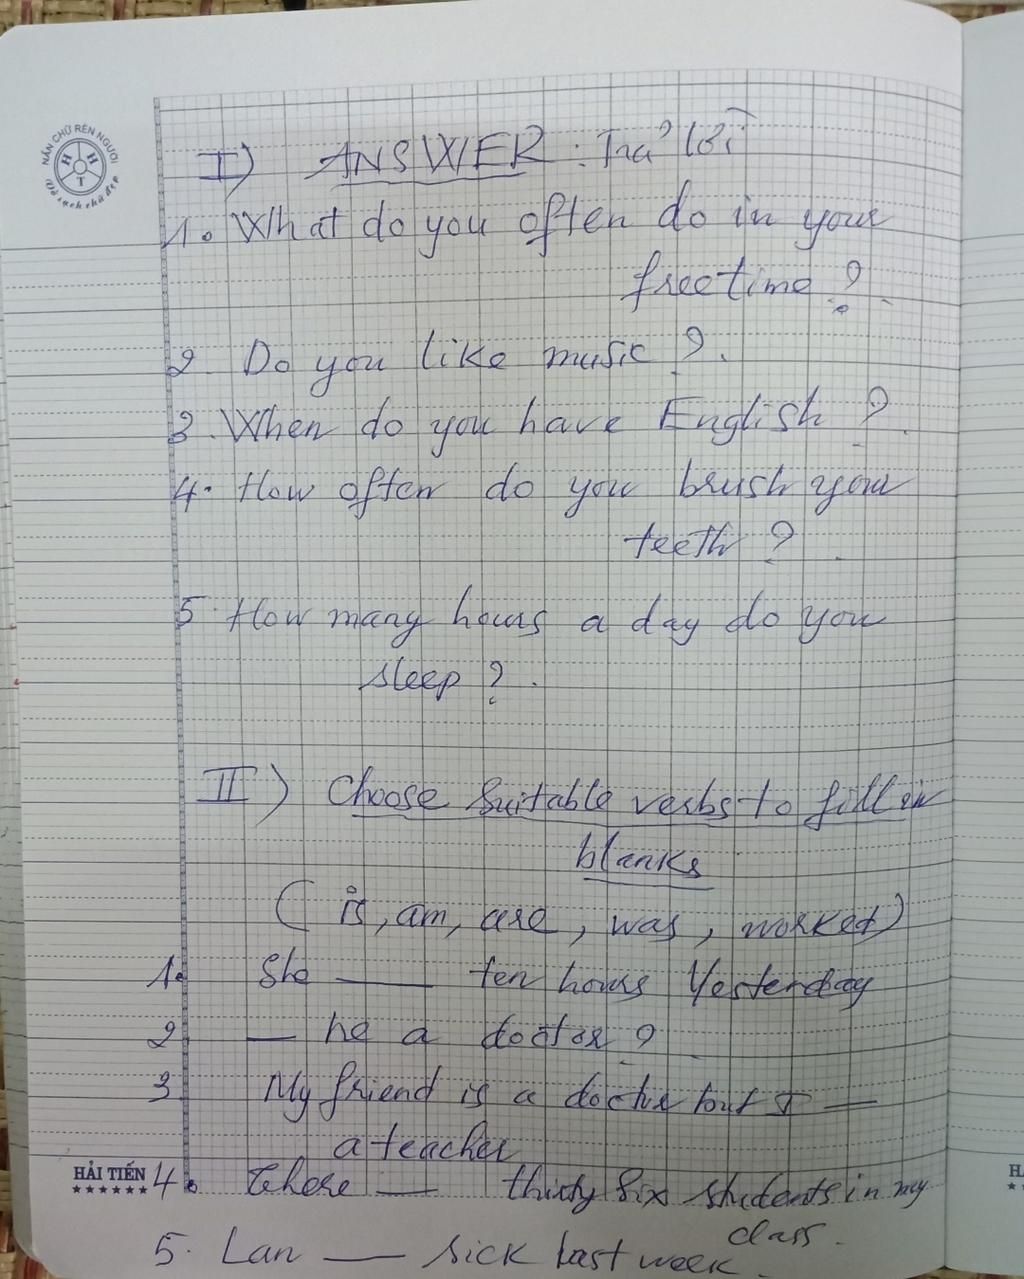 NẮN CHỮ RÈN NGƯỜI
H H T
Vở sạch chữ đẹp
I) ANSWER: Trả lời
1. What do you often do in your
free time?
2. Do you like music?.
3. When do you have English?
4. How often do you brush your
teeth?
5. How many hours a day do you
sleep?.
II) Choose suitable verbs to fill in
blanks
(is, am, are, was, worked)
1. She ___ ten hours Yesterday
2. ___ he a doctor?
3. My friend is a doctor but I ___
a teacher
HẢI TIẾN
4. There ___ thirty six students in my
class.
5. Lan ___ sick last week.